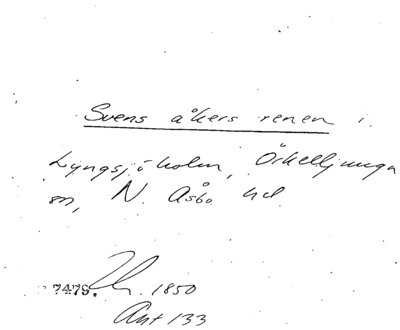 Svens åkers renen i
Lyngsjöholm, Örkelljunga
sn, N. Åsbo hd
7479. 1850
Ant 133